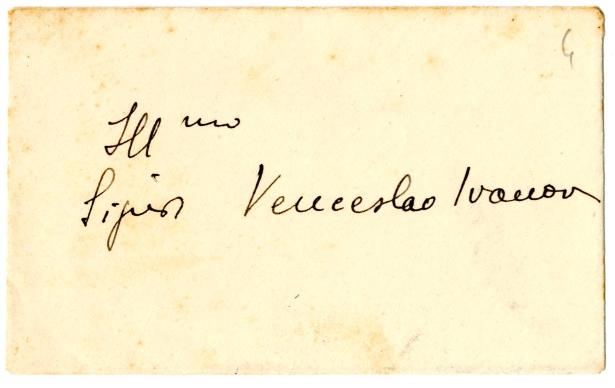 6
Ill mo
Signor Venceslao Ivanov